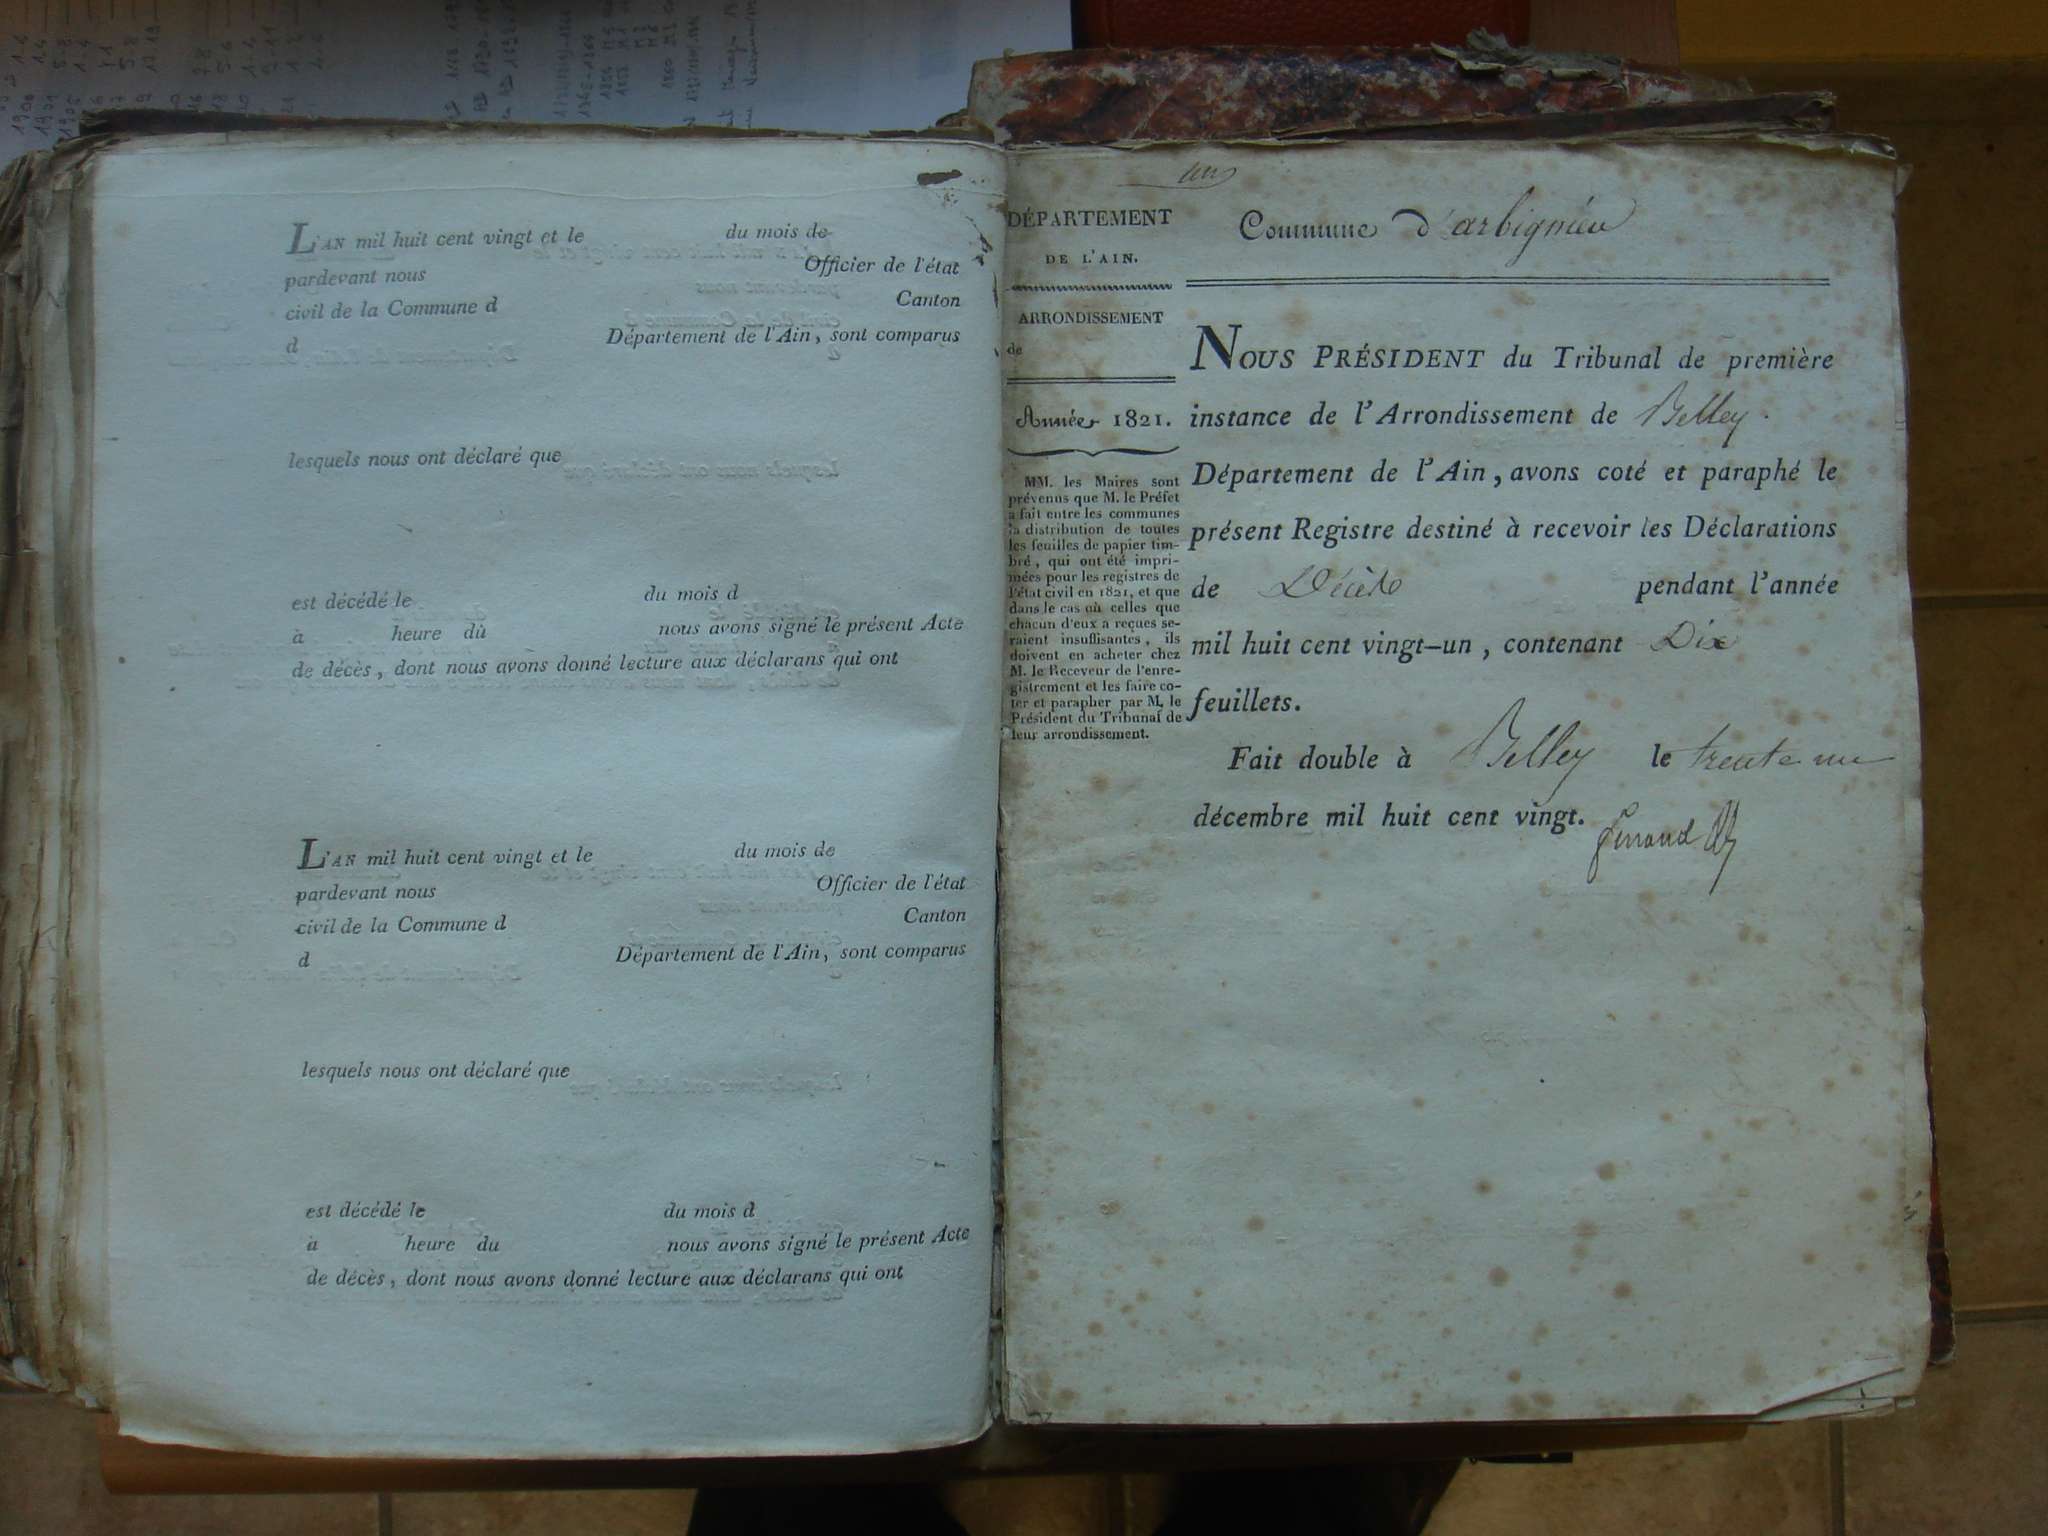 L'AN mil huit cent vingt et le du mois de
pardevant nous Officier de l'état
civil de la Commune d Canton
d Département de l'Ain, sont comparus
lesquels nous ont déclaré que
est décédé le du mois d
à heure du nous avons signé le présent Acte
de décès, dont nous avons donné lecture aux déclarans qui ont
L'AN mil huit cent vingt et le du mois de
pardevant nous Officier de l'état
civil de la Commune d Canton
d Département de l'Ain, sont comparus
lesquels nous ont déclaré que
est décédé le du mois d
à heure du nous avons signé le présent Acte
de décès, dont nous avons donné lecture aux déclarans qui ont
un
DÉPARTEMENT
DE L'AIN.
ARRONDISSEMENT
de
Année 1821.
MM. les Maires sont
prévenus que M. le Préfet
a fait entre les communes
la distribution de toutes
les feuilles de papier tim-
bré, qui ont été impri-
mées pour les registres de
l'état civil en 1821, et que
dans le cas où celles que
chacun d'eux a reçues se-
raient insuffisantes, ils
doivent en acheter chez
M. le Receveur de l'enre-
gistrement et les faire co-
ter et parapher par M. le
Président du Tribunal de
leur arrondissement.
Commune d'arbignieu
NOUS PRÉSIDENT du Tribunal de première
instance de l'Arrondissement de Belley.
Département de l'Ain, avons coté et paraphé le
présent Registre destiné à recevoir les Déclarations
de Décès pendant l'année
mil huit cent vingt-un, contenant Dix
feuillets.
Fait double à Belley le trente un
décembre mil huit cent vingt.